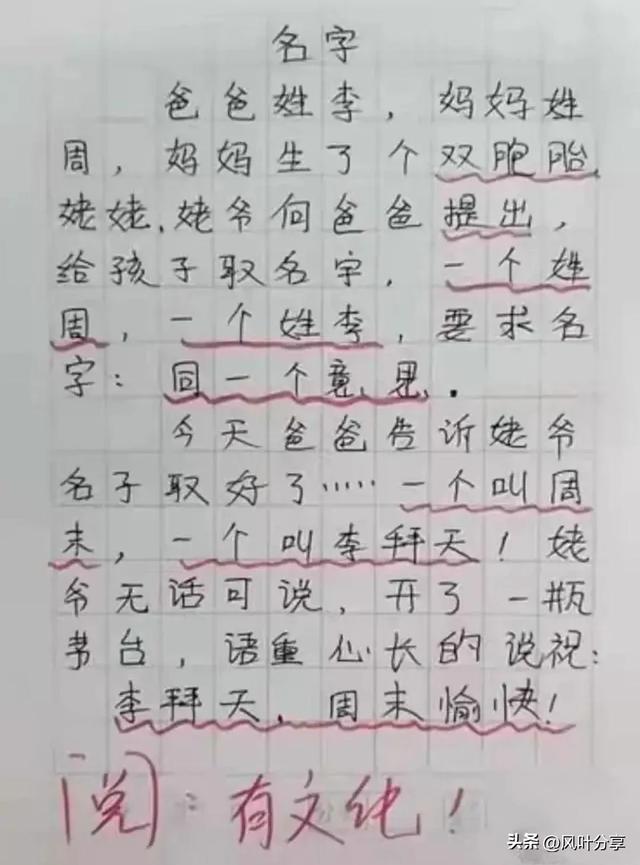 名字
爸爸姓李，妈妈姓
周，妈妈生了个双胞胎，
姥姥、姥爷向爸爸提出，
给孩子取名字，一个姓
周，一个姓李，要求名
字：同一个意思．
今天爸爸告诉姥爷
名子取好了……一个叫周
末，一个叫李拜天！姥
爷无话可说，开了一瓶
茅台，语重心长的说祝：
李拜天、周末愉快！
阅：有文化！
头条@风叶分享